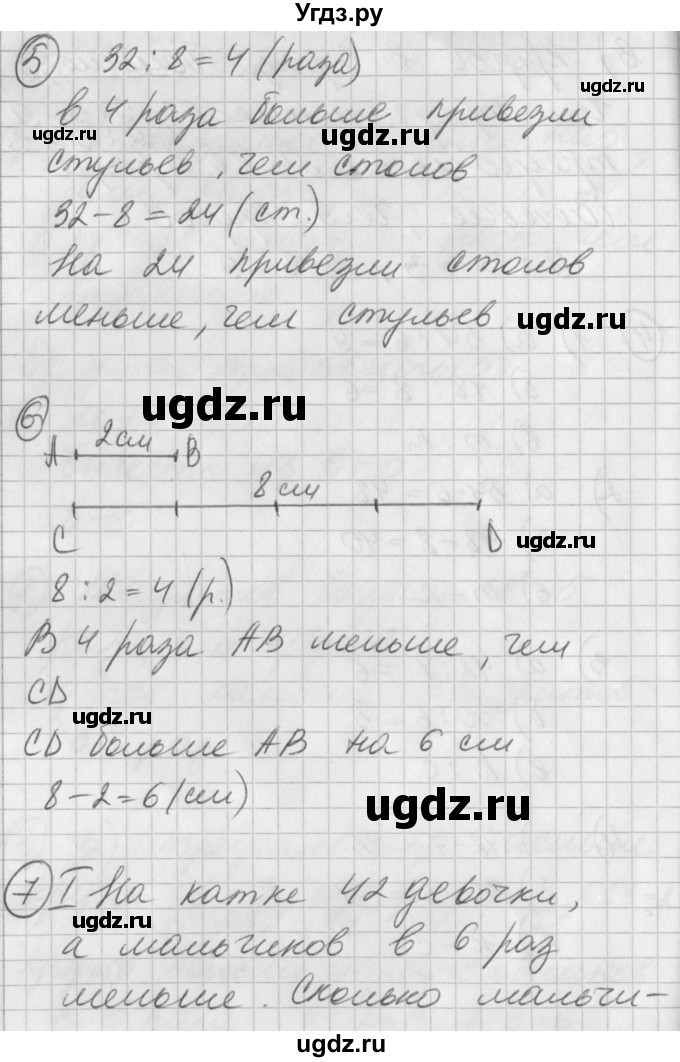 Угдз.ру
5 32 : 8 = 4 (раза)
в 4 раза больше привезли
ugdz.ru ugdz.ru
стульев, чем столов
ugdz.ru
32 - 8 = 24 (ст.)
На 24 привезли столов
меньше, чем стульев
ugdz.ru
ugdz.ru
6
A 2 см B
8 см
C D
ugdz.ru
8 : 2 = 4 (р.)
В 4 раза AB меньше, чем
CD
ugdz.ru
CD больше AB на 6 см
8 - 2 = 6 (см)
ugdz.ru
7 I На катке 42 девочки,
ugdz.ru
а мальчиков в 6 раз
меньше. Сколько мальчи-
ugdz.ru